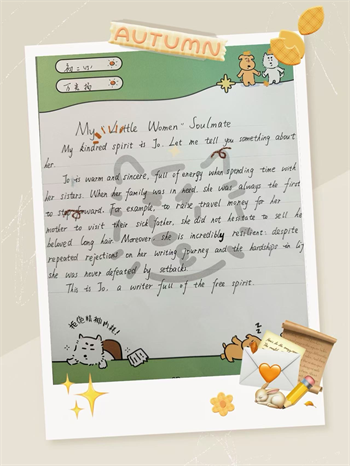 AUTUMN
My Little Women Soulmate
My kindred spirit is Jo. Let me tell you something about
her.
Jo is warm and sincere, full of energy when spending time
her sisters. When her family was in need, she was always the first
to step forward. For example, to raise travel money for her
mother to visit their sick father, she did not hesitate to sell her
beloved long hair. Moreover, she is incredibly resilient: despite
repeated rejections on her writing journey and the hardships in life
she was never defeated by setbacks.
This is Jo, a writer full of the free spirit.
拒绝精神内耗!